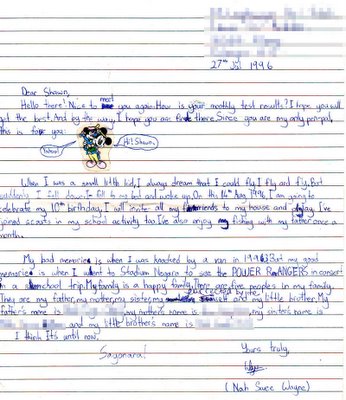 27th Jul 1996
Dear Shawn,
Hello there! Nice to meet you again. How is your monthly test results? I hope you will
get the best. And by the way, I hope you are fine there. Since you are my only penpal,
this is for you:
Wow!
Hi! Shawn.
When I was a small little kid, I always dream that I could fly. I fly and fly. But
suddenly I fall down. I'm fell to my bed and woke up. On the 16th Aug 1996, I am going to
celebrate my 10th birthday. I will invite all my friends to my house and play. I've
joined scouts in my school activity too. I've also enjoy my fishing with my father once a
month.
My bad memories is when I was knocked by a van in 1996. But my good
memories is when I went to Stadium Negara to see the POWER RANGERS in concert
in a school trip. My family is a happy family. There are five peoples in my family.
They are my father, my mother, my sister, myself and my little brother. My
father's name is my mother's name is my sister's name is
and my little brother's name is
I think it's until now.
Sayonara!
Yours truly,
(Nah Suee Wayne)